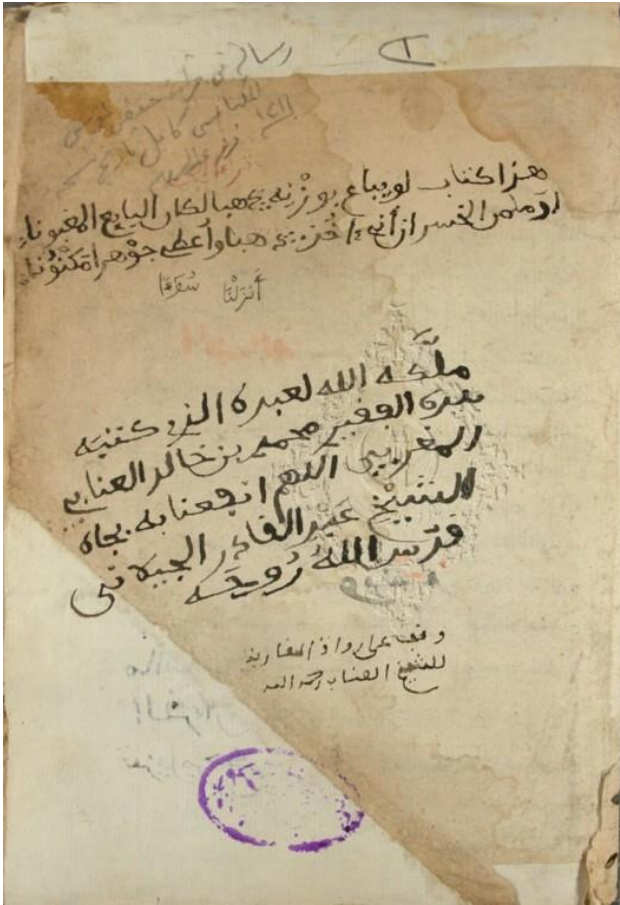 رسالة في
هذا كتاب لو يباع بوزنه ذهبا لكان البايع المغبونا
أو ما من الخسران أني آخذ ذهبا وأعطي جوهرا مكنونا
أنزلنا
ملكه الله لعبده الذي كتبه
بيده الفقير محمد بن خالد العنابي
المغربي اللهم انفعنا به بجاه
الشيخ عبد القادر الجيلاني
قدس الله روحه
وقف على رواق المغاربة
للشيخ العنابي رحمه الله